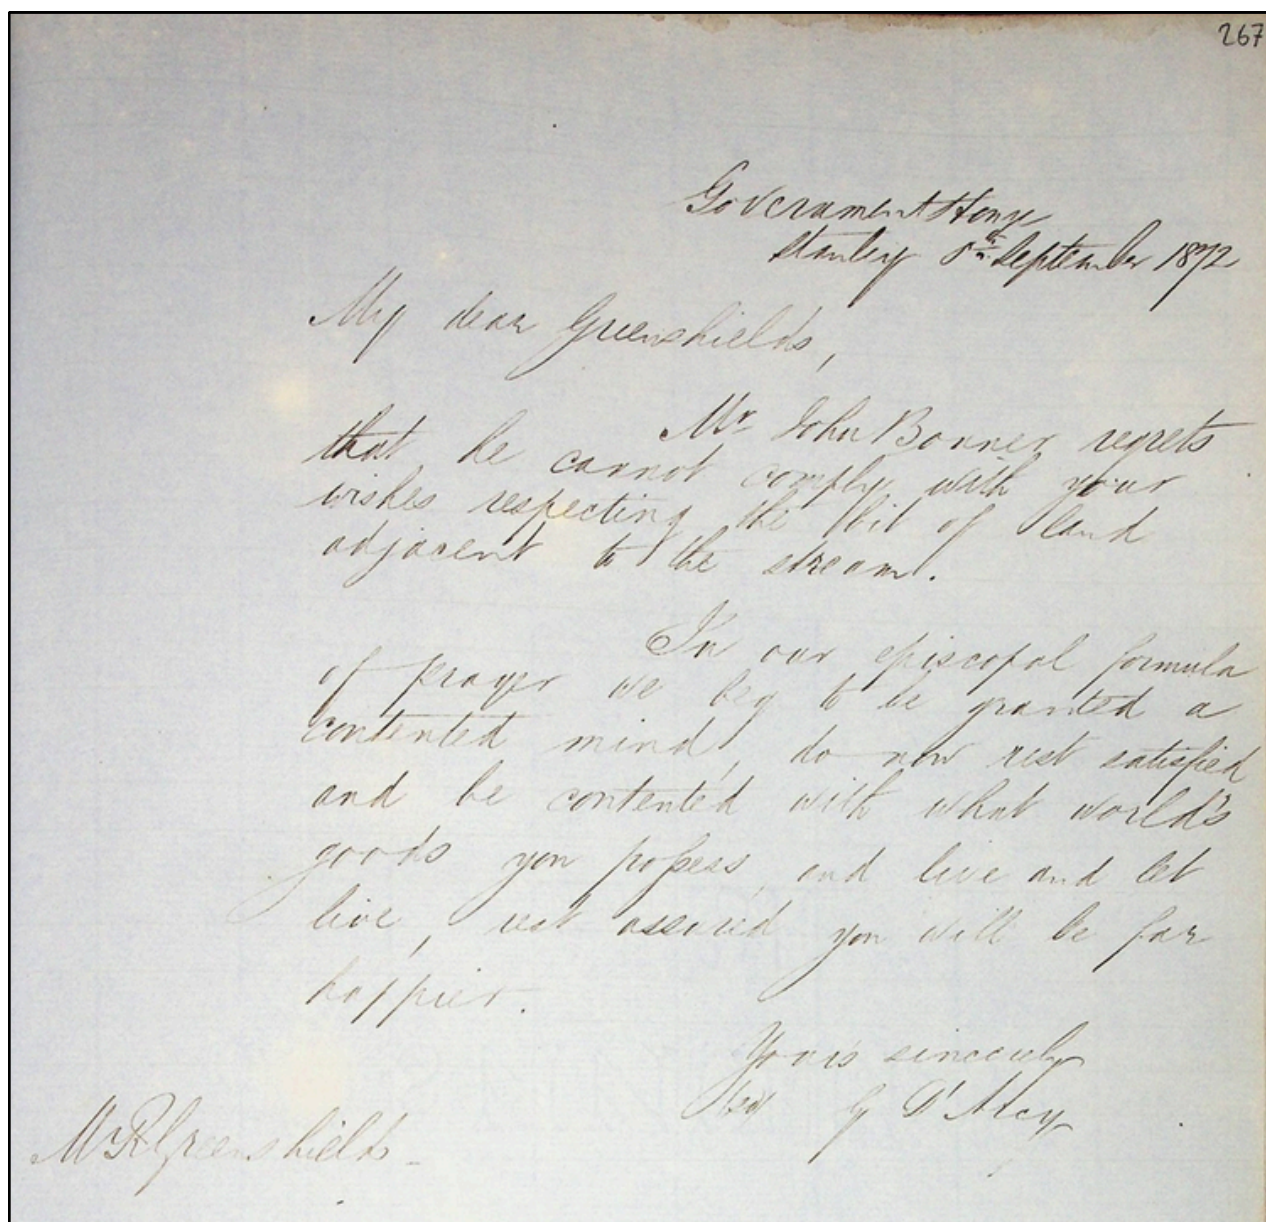 267
Government House
Stanley 5th September 1872
My dear Greenshields,
Mr John Bonner regrets
that he cannot comply with your
wishes respecting the bit of land
adjacent to the stream.
In our episcopal formula
of prayer we beg to be granted a
contented mind, do now rest satisfied
and be contented with what world's
goods you possess, and live and let
live, rest assured you will be far
happier.
Yours sincerely
G D'Arcy
Mr R Greenshields